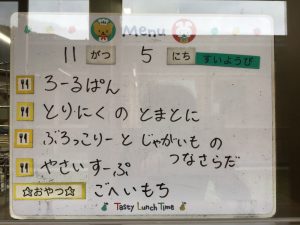 Menu
11 がつ 5 にち すいようび
ろーるぱん
とりにく の とまとに
ぶろっこりーと じゃがいも の
つなさらだ
やさいすーぷ
☆おやつ☆ ごへいもち
Tasty Lunch Time